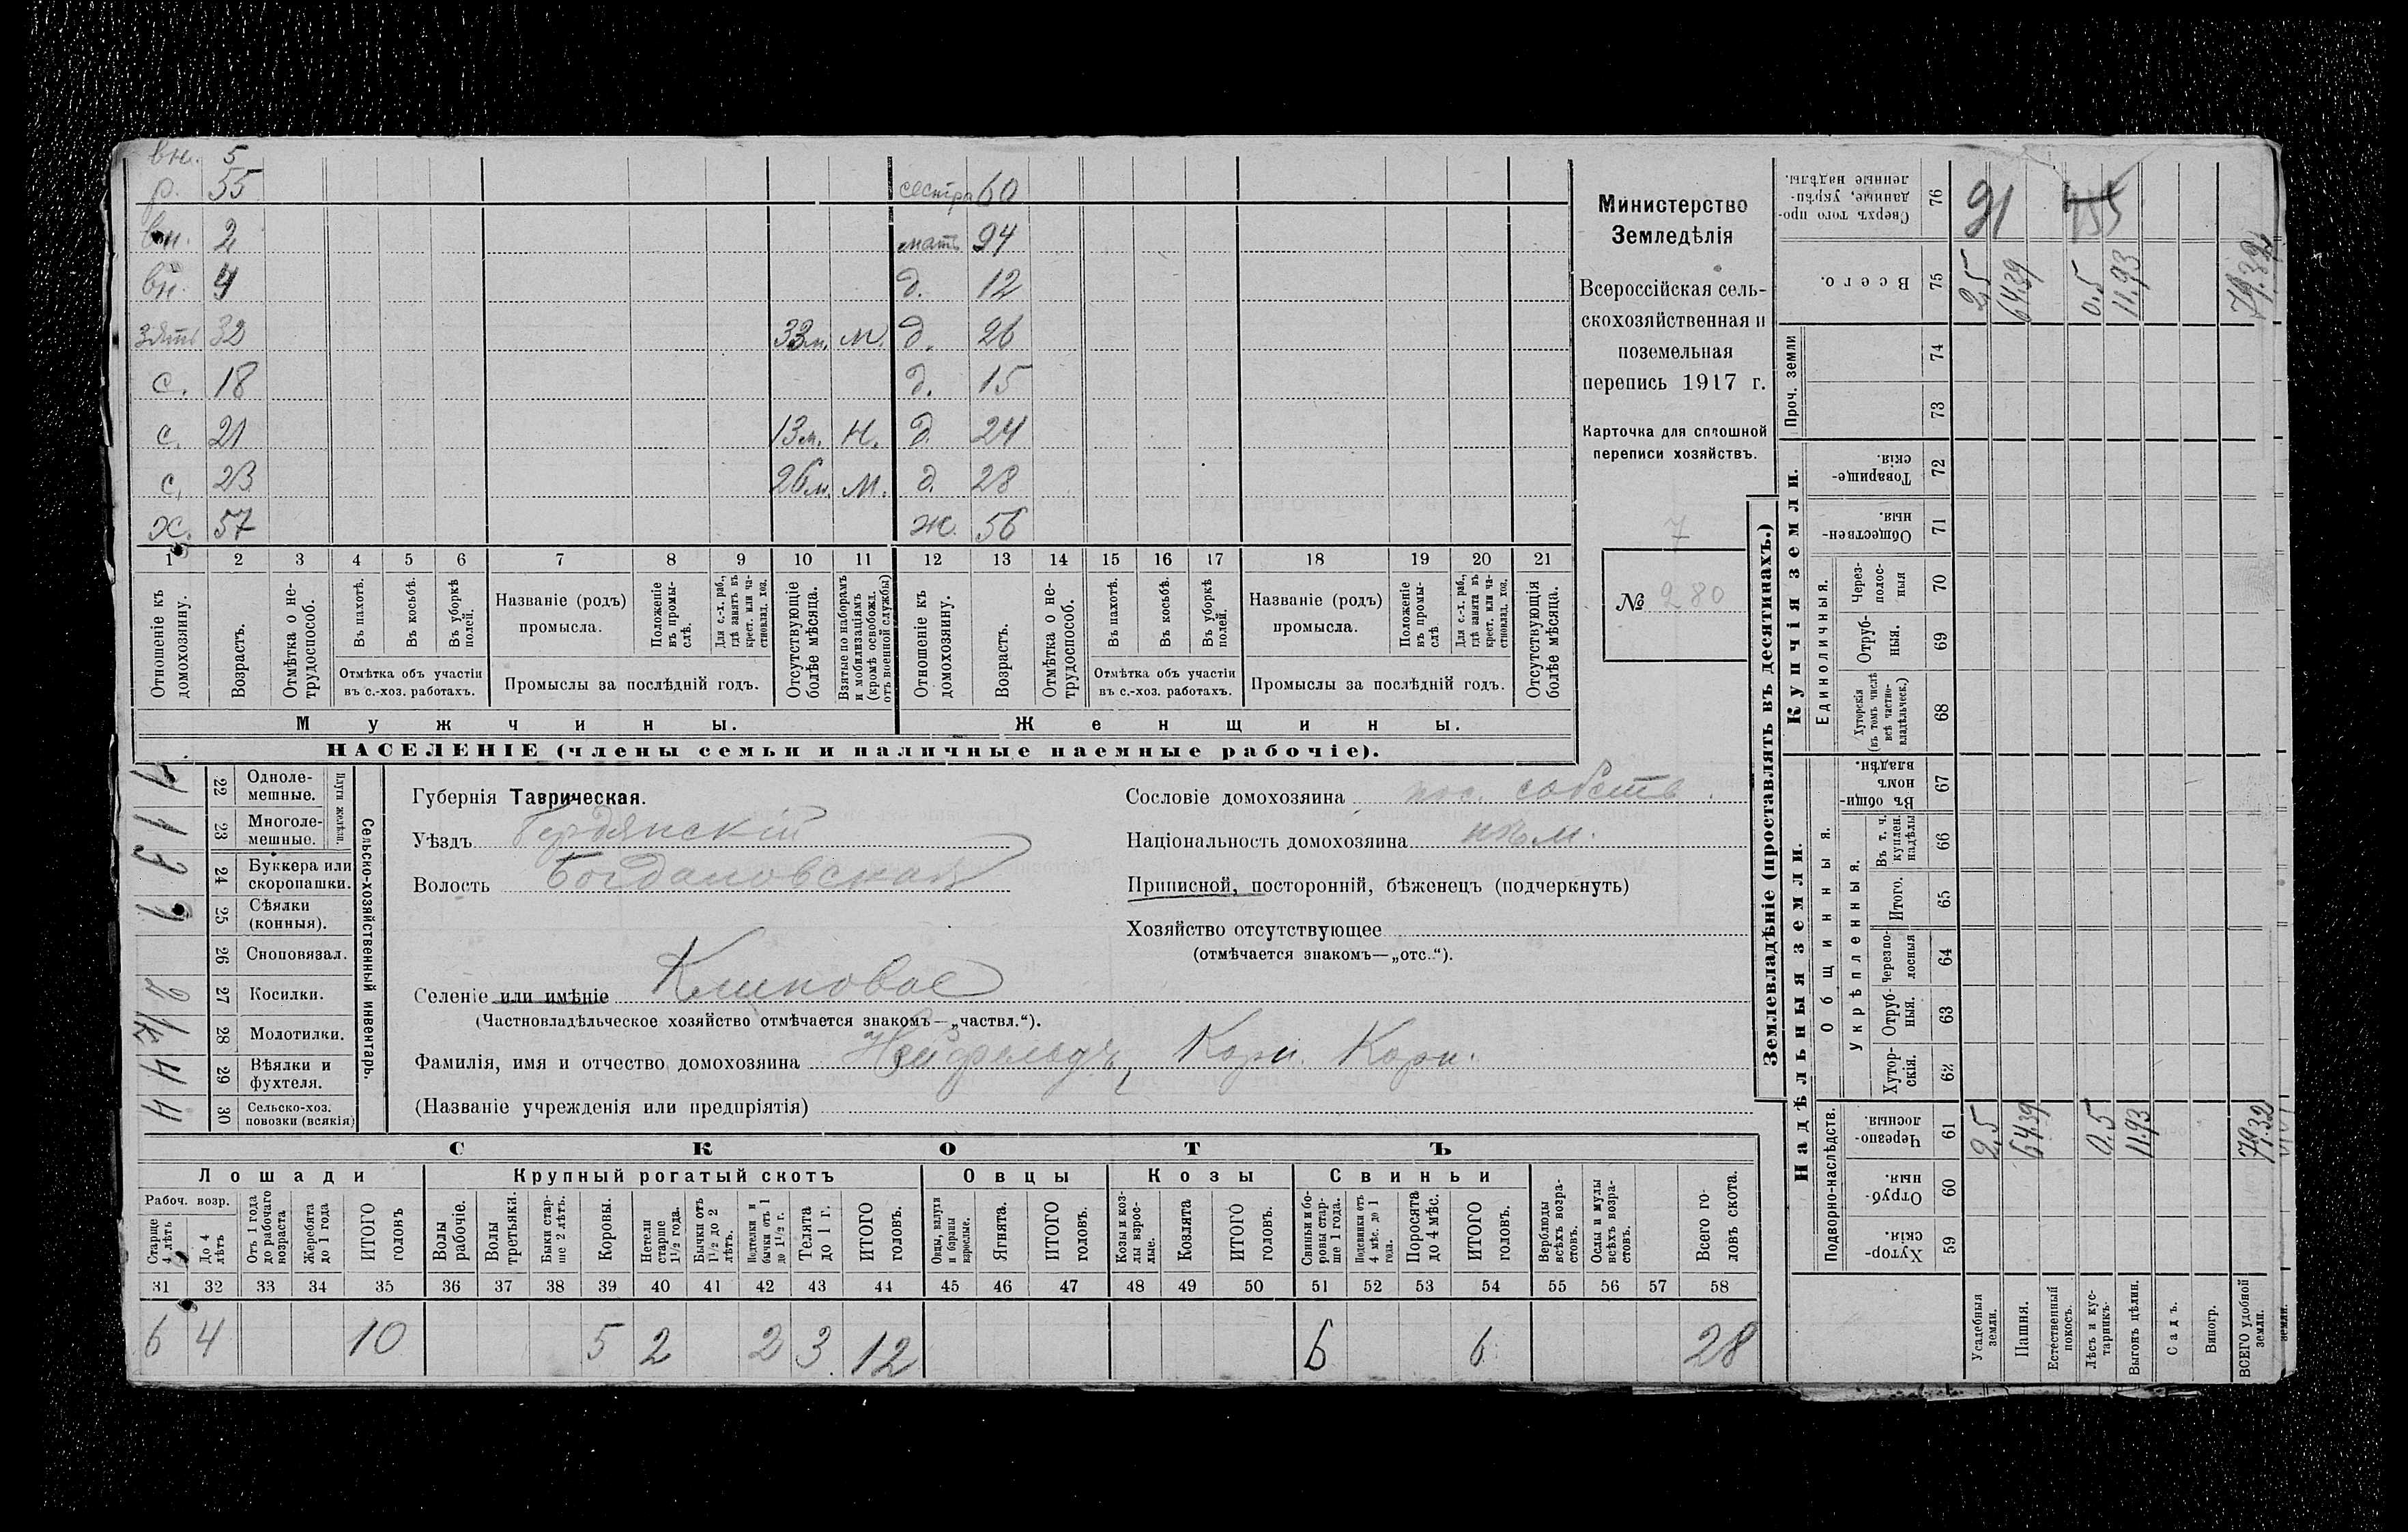 вн. 5
р. 55 сестра 60
вн. 2 мать 94
вн. 4 д. 12
зять 32 33м. М. д. 26
с. 18 д. 15
с. 21 13м. Н. д. 24
с. 23 26м. М. д. 28
х. 57 ж. 56
1 2 3 4 5 6 7 8 9 10 11 12 13 14 15 16 17 18 19 20 21
Отношеніе къ домохозяину.
Возрастъ.
Отмѣтка о не-трудоспособ.
Въ пахотѣ.
Въ косьбѣ.
Въ уборкѣ полей.
Отмѣтка объ участіи въ с.-хоз. работахъ.
Названіе (родъ) промысла.
Положеніе въ промы-слѣ.
Для с.-х. раб., гдѣ занятъ въ крест. или ча-стновлад. хоз.
Промыслы за послѣдній годъ.
Отсутствующіе болѣе мѣсяца.
Взятые по наборамъ и мобилизаціямъ (кромѣ освобожд. отъ военной службы)
Отношеніе къ домохозяину.
Возрастъ.
Отмѣтка о не-трудоспособ.
Въ пахотѣ.
Въ косьбѣ.
Въ уборкѣ полей.
Отмѣтка объ участіи въ с.-хоз. работахъ.
Названіе (родъ) промысла.
Положеніе въ промы-слѣ
Для с.-х. раб., гдѣ занята въ крест. или ча-стновлад. хоз.
Промыслы за послѣдній годъ.
Отсутствующія болѣе мѣсяца.
Мужчины. Женщины.
НАСЕЛЕНІЕ (члены семьи и наличные наемные рабочіе).
Министерство
Земледѣлія
Всероссійская сель-
скохозяйственная и
поземельная
перепись 1917 г.
Карточка для сплошной
переписи хозяйствъ.
7
№ 280
22 Одноле-мешные.
23 Многоле-мешные.
Плуги желѣзн.
24 Буккера или скоропашки.
25 Сѣялки (конныя).
26 Сноповязал.
27 Косилки.
28 Молотилки.
29 Вѣялки и фухтеля.
30 Сельско-хоз. повозки (всякія)
Сельско-хозяйственный инвентарь.
1
1
2
½
4
4
Губернія Таврическая.
Уѣздъ Бердянскій
Волость Богдановская
Сословіе домохозяина пос. собств.
Національность домохозяина нѣм.
Приписной, посторонній, бѣженецъ (подчеркнуть)
Хозяйство отсутствующее
(отмѣчается знакомъ—„отс.“).
Селеніе или имѣніе Клиновое
(Частновладѣльческое хозяйство отмѣчается знакомъ—„частвл.“).
Фамилія, имя и отчество домохозяина Нейфельдъ, Корн. Корн.
(Названіе учрежденія или предпріятія)
СКОТЪ
Лошади Крупный рогатый скотъ Овцы Козы Свиньи
Рабоч. возр.
Старше 4 лѣтъ
До 4 лѣтъ
Отъ 1 года до рабочаго возраста
Жеребята до 1 года
ИТОГО головъ
Волы рабочіе.
Волы третьяки.
Быки стар-ше 2 лѣтъ.
Коровы.
Нетели старше 1½ года.
Бычки отъ 1½ до 2 лѣтъ.
Подтелки и бычки отъ 1 до 1½ г.
Телята до 1 г.
ИТОГО головъ.
Овцы, валухи и бараны взрослые.
Ягнята.
ИТОГО головъ.
Козы и коз-лы взрос-лые.
Козлята
ИТОГО головъ.
Свиньи и бо-ровы стар-ше 1 года.
Подсвинки отъ 4 мѣс. до 1 года.
Поросята до 4 мѣс.
ИТОГО головъ.
Верблюды всѣхъ возра-стовъ.
Ослы и мулы всѣхъ возра-стовъ.
Всего го-ловъ скота.
31 32 33 34 35 36 37 38 39 40 41 42 43 44 45 46 47 48 49 50 51 52 53 54 55 56 57 58
6 4 10 5 2 2 3 12 6 6 28
Землевладѣніе (проставлять въ десятинахъ.)
Надѣльныя земли.
Купчія земли.
Проч. земли
Подворно-наслѣдств.
Общинныя.
Укрѣпленныя.
Единоличныя.
Сверхъ того про-данные, укрѣп-ленные надѣлы. 76
Всего. 75
74
73
Товарище-скія. 72
Обществен-ныя. 71
Через-полос-ныя 70
Отруб-ныя. 69
Хуторскія (въ томъ числѣ всѣ частно-владѣльческ.) 68
Въ общин-номъ владѣн. 67
Въ т. ч. куплен. надѣлы 66
Итого. 65
Черезпо-лосныя 64
Отруб-ныя. 63
Хутор-скія. 62
Черезпо-лосныя 61
Отруб-ныя. 60
Хутор-скія. 59
91 155
2,5 64.39 0.5 11.93 79.32
2,5 64.39 0.5 11.93 79.32
Усадебныя земли.
Пашня.
Естественный покосъ.
Лѣсъ и кус-тарникъ.
Выгонъ цѣлин.
Садъ.
Виногр.
ВСЕГО удобной земли.
земли.